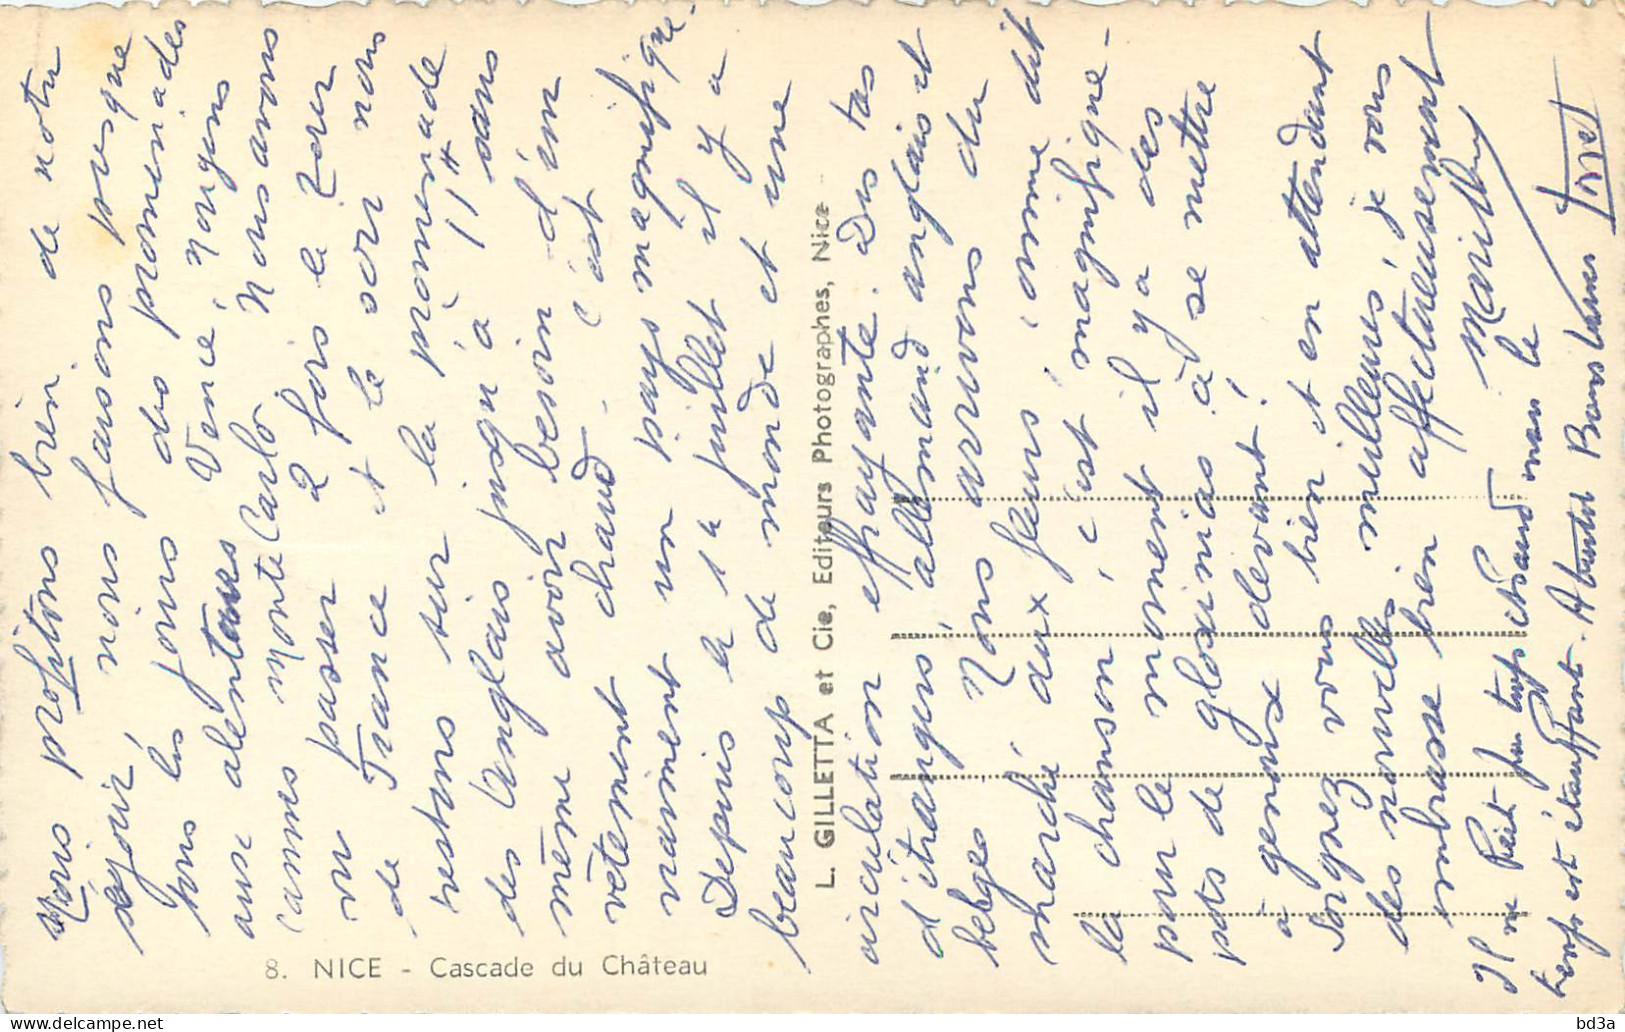 Nous profitons bien de notre
séjour, nous faisons presque
tous les jours des promenades
aux alentours Vence,
Cannes Monte Carlo Nous avons
vu passer 2 fois le Tour
de France et le soir nous
restons sur la promenade
des Anglais jusqu'à 11H sans
même avoir besoin d'un
vêtement chaud - c'est
vraiment un pays magnifique -
Depuis le 1er juillet il y a
beaucoup de monde et une
circulation effrayante. Des tas
d'étrangers, allemand anglais et
belges Nous arrivons du
marché aux fleurs, comme dit
la chanson, c'est magnifique -
pour le moment il y a des
pots de gloxinias à se mettre
à genoux devant!
Soyez vous bien et en attendant
des nouvelles meilleures, je vous
embrasse bien affectueusement
Il ne fait pas trop chaud mais le
temps est étouffant. A bientôt Bons baisers
L. GILLETTA et Cie, Editeurs Photographes, Nice
8. NICE - Cascade du Château
bd3a